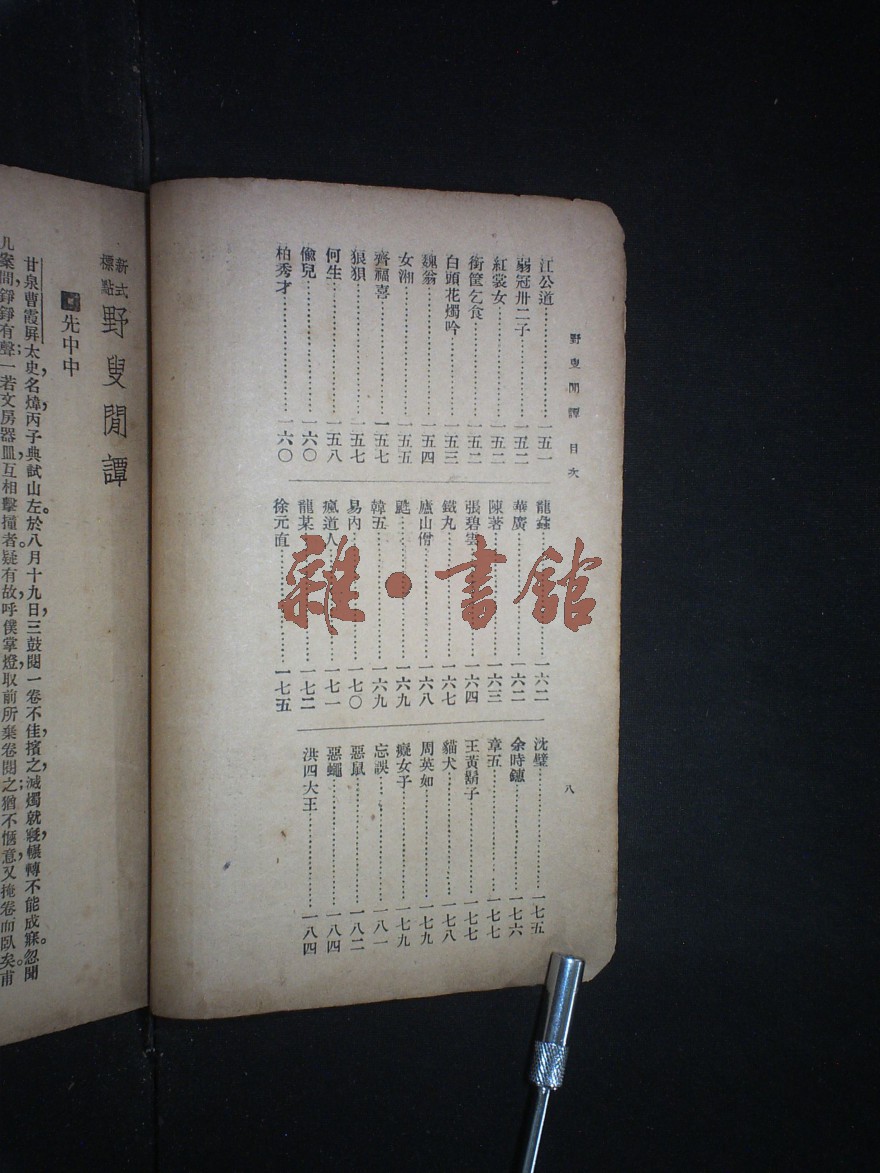 野叟閒譚　目次
八
江公道……一五一
弱冠卅二子……一五二
紅裳女……一五二
銜筐乞食……一五二
白頭花燭吟……一五三
魏翁……一五四
女湘……一五五
齊福喜……一五七
狼狽……一五七
何生……一五八
偷兒……一六〇
柏秀才……一六〇
龍蠡……一六二
華廣……一六二
陳著……一六三
張碧雲……一六四
鐵丸……一六七
廬山僧……一六八
……一六九
韓五……一六九
易內……一七〇
瘋道人……一七一
龍某……一七二
徐元直……一七五
沈璧……一七五
余時鏸……一七六
章五……一七七
王黃鬍子……一七七
貓犬……一七八
周英如……一七九
癡女子……一七九
忘誤……一八一
惡鼠……一八二
惡蠅……一八四
洪四大王……一八四
雜·書館
新式標點　野叟閒譚
先中中
甘泉曹霞屏太史，名煒，丙子典試山左。於八月十九日三鼓，閱一卷不佳，擯之；滅燭就寢，輾轉不能成寐。忽聞
几案間，錚錚有聲；一若文房器皿，互相擊撞者。疑有故，呼僕掌燈，取前所棄卷閱之，猶不愜意，又掩卷而臥矣。甫